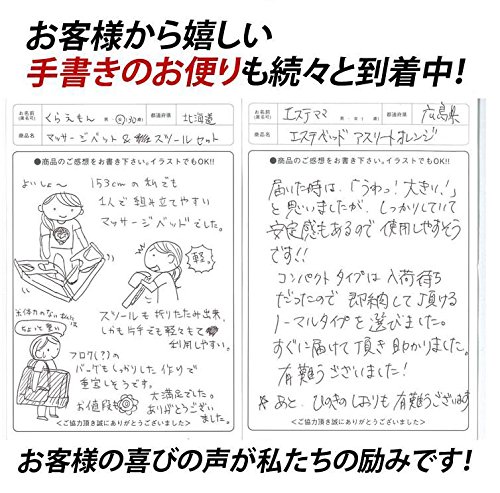 お客様から嬉しい
手書きのお便りも続々と到着中!
お名前
(匿名可)
くらえもん
女・30歳
都道府県
北海道
商品名
マッサージベット & スツールセット
●商品のご感想をお書き下さい。イラストでもOK!!
よいしょ〜
153cmの私でも
1人で組み立てやすい
マッサージベッドでした。
軽
スツールも折りたたみ出来、
しかも片手でも軽々もてて
利用しやすい。
※体力のない私には
ちょいと重い
フロク(?)の
バーゲもしっかりした作りで
重宝しそうです。
お値段も
大満足でした。
ありがとうござい
ました。
<ご協力頂き誠にありがとうございました>
お名前
(匿名可)
エステママ
都道府県
広島県
商品名
エステベッド アスリートオレンジ
●商品のご感想をお書き下さい。イラストでもOK!!
届いた時は、「うわっ!大きい!」
と思いましたが、しっかりしていて
安定感もあるので使用しやすそう
です!!
コンパクトタイプは入荷待ち
だったので即納して頂ける
ノーマルタイプを選びました。
すぐに届けて頂き助かりました。
有難うございました!
※あと、ひのきのしおりも有難うございます
<ご協力頂き誠にありがとうございました>
お客様の喜びの声が私たちの励みです!